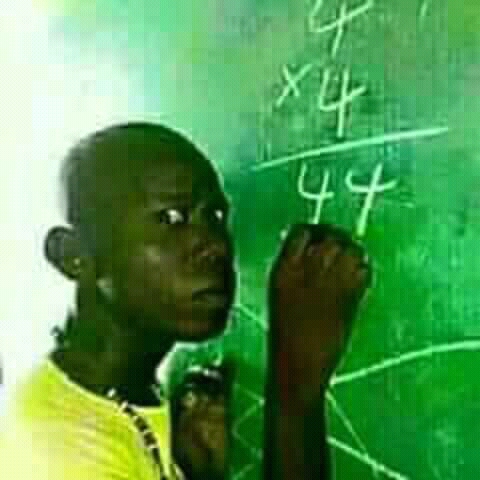 4
×4
44